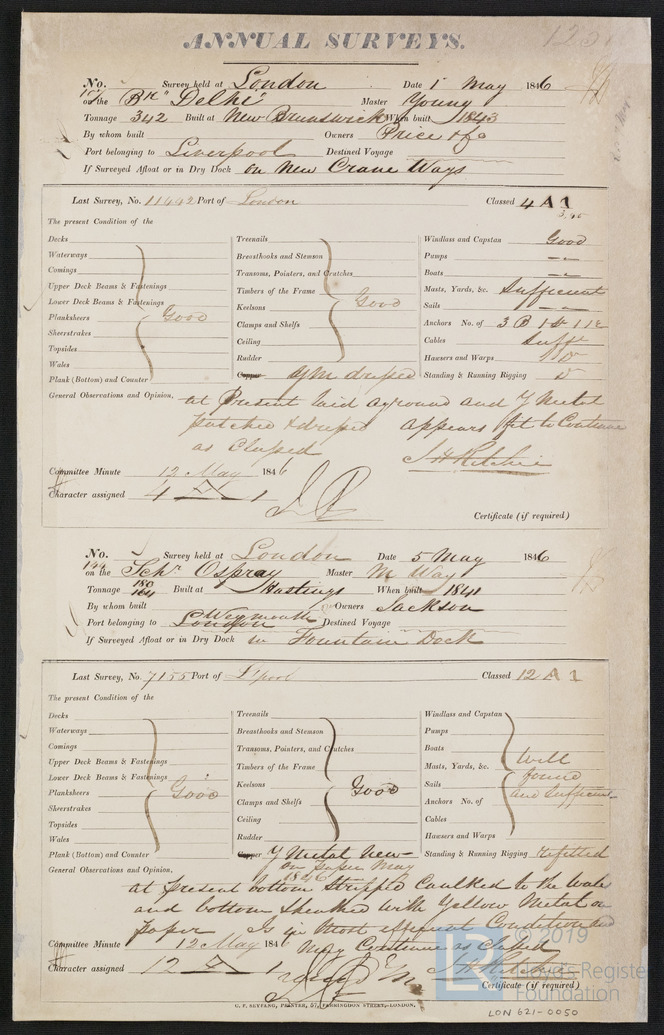 ANNUAL SURVEYS. 123
No. Survey held at London Date 1 May 1846
on the Bk "Delhi" Master Young
Tonnage 342 Built at New Brunswick When built 1843
By whom built Owners Price & Co
Port belonging to Liverpool Destined Voyage
If Surveyed Afloat or in Dry Dock on New Crane Ways
Last Survey, No. 11442 Port of London Classed 4 A 1
The present Condition of the
Decks
Waterways
Comings
Upper Deck Beams & Fastenings
Lower Deck Beams & Fastenings
Planksheers Good
Sheerstrakes
Topsides
Wales
Plank (Bottom) and Counter
Treenails
Breasthooks and Stemson
Transoms, Pointers, and Crutches
Timbers of the Frame
Keelsons Good
Clamps and Shelfs
Ceiling
Rudder
Copper YM dressed
Windlass and Capstan Good
Pumps
Boats
Masts, Yards, &c. Sufficient
Sails
Anchors No. of 3 B 1 St 1 K
Cables Sufft
Hawsers and Warps Do
Standing & Running Rigging Do
General Observations and Opinion, at Present laid aground and Y Metal
patched & dressed appears fit to Continue
as Classed J H Ritchie
Committee Minute 12 May 1846
Character assigned 4 A 1
Certificate (if required)
No. Survey held at London Date 5 May 1846
on the Schr Ospray Master M Way
Tonnage 180 164 Built at Hastings When built 1841
By whom built Owners Jackson
Port belonging to London Weymouth Destined Voyage
If Surveyed Afloat or in Dry Dock in Fountain Dock
Last Survey, No. 7155 Port of L'pool Classed 12 A 1
The present Condition of the
Decks
Waterways
Comings
Upper Deck Beams & Fastenings
Lower Deck Beams & Fastenings
Planksheers Good
Sheerstrakes
Topsides
Wales
Plank (Bottom) and Counter
Treenails
Breasthooks and Stemson
Transoms, Pointers, and Crutches
Timbers of the Frame
Keelsons Good
Clamps and Shelfs
Ceiling
Rudder
Copper Y Metal New
on paper May
1846
Windlass and Capstan
Pumps
Boats
Masts, Yards, &c. Well
Sails found
Anchors No. of and Sufficient
Cables
Hawsers and Warps
Standing & Running Rigging refitted
General Observations and Opinion,
at present bottom stripped Caulked to the Wales
and bottom sheathed with Yellow Metal on
paper Is in Most efficient Condition and
May Continue as Classed
Committee Minute 12 May 1846
J H Ritchie
Character assigned 12 A 1
Certificate (if required)
G. F. SEYFANG, PRINTER, 57, FARRINGDON STREET,-LONDON.
LR © 2019
Lloyd's Register
Foundation
LON 621-0050